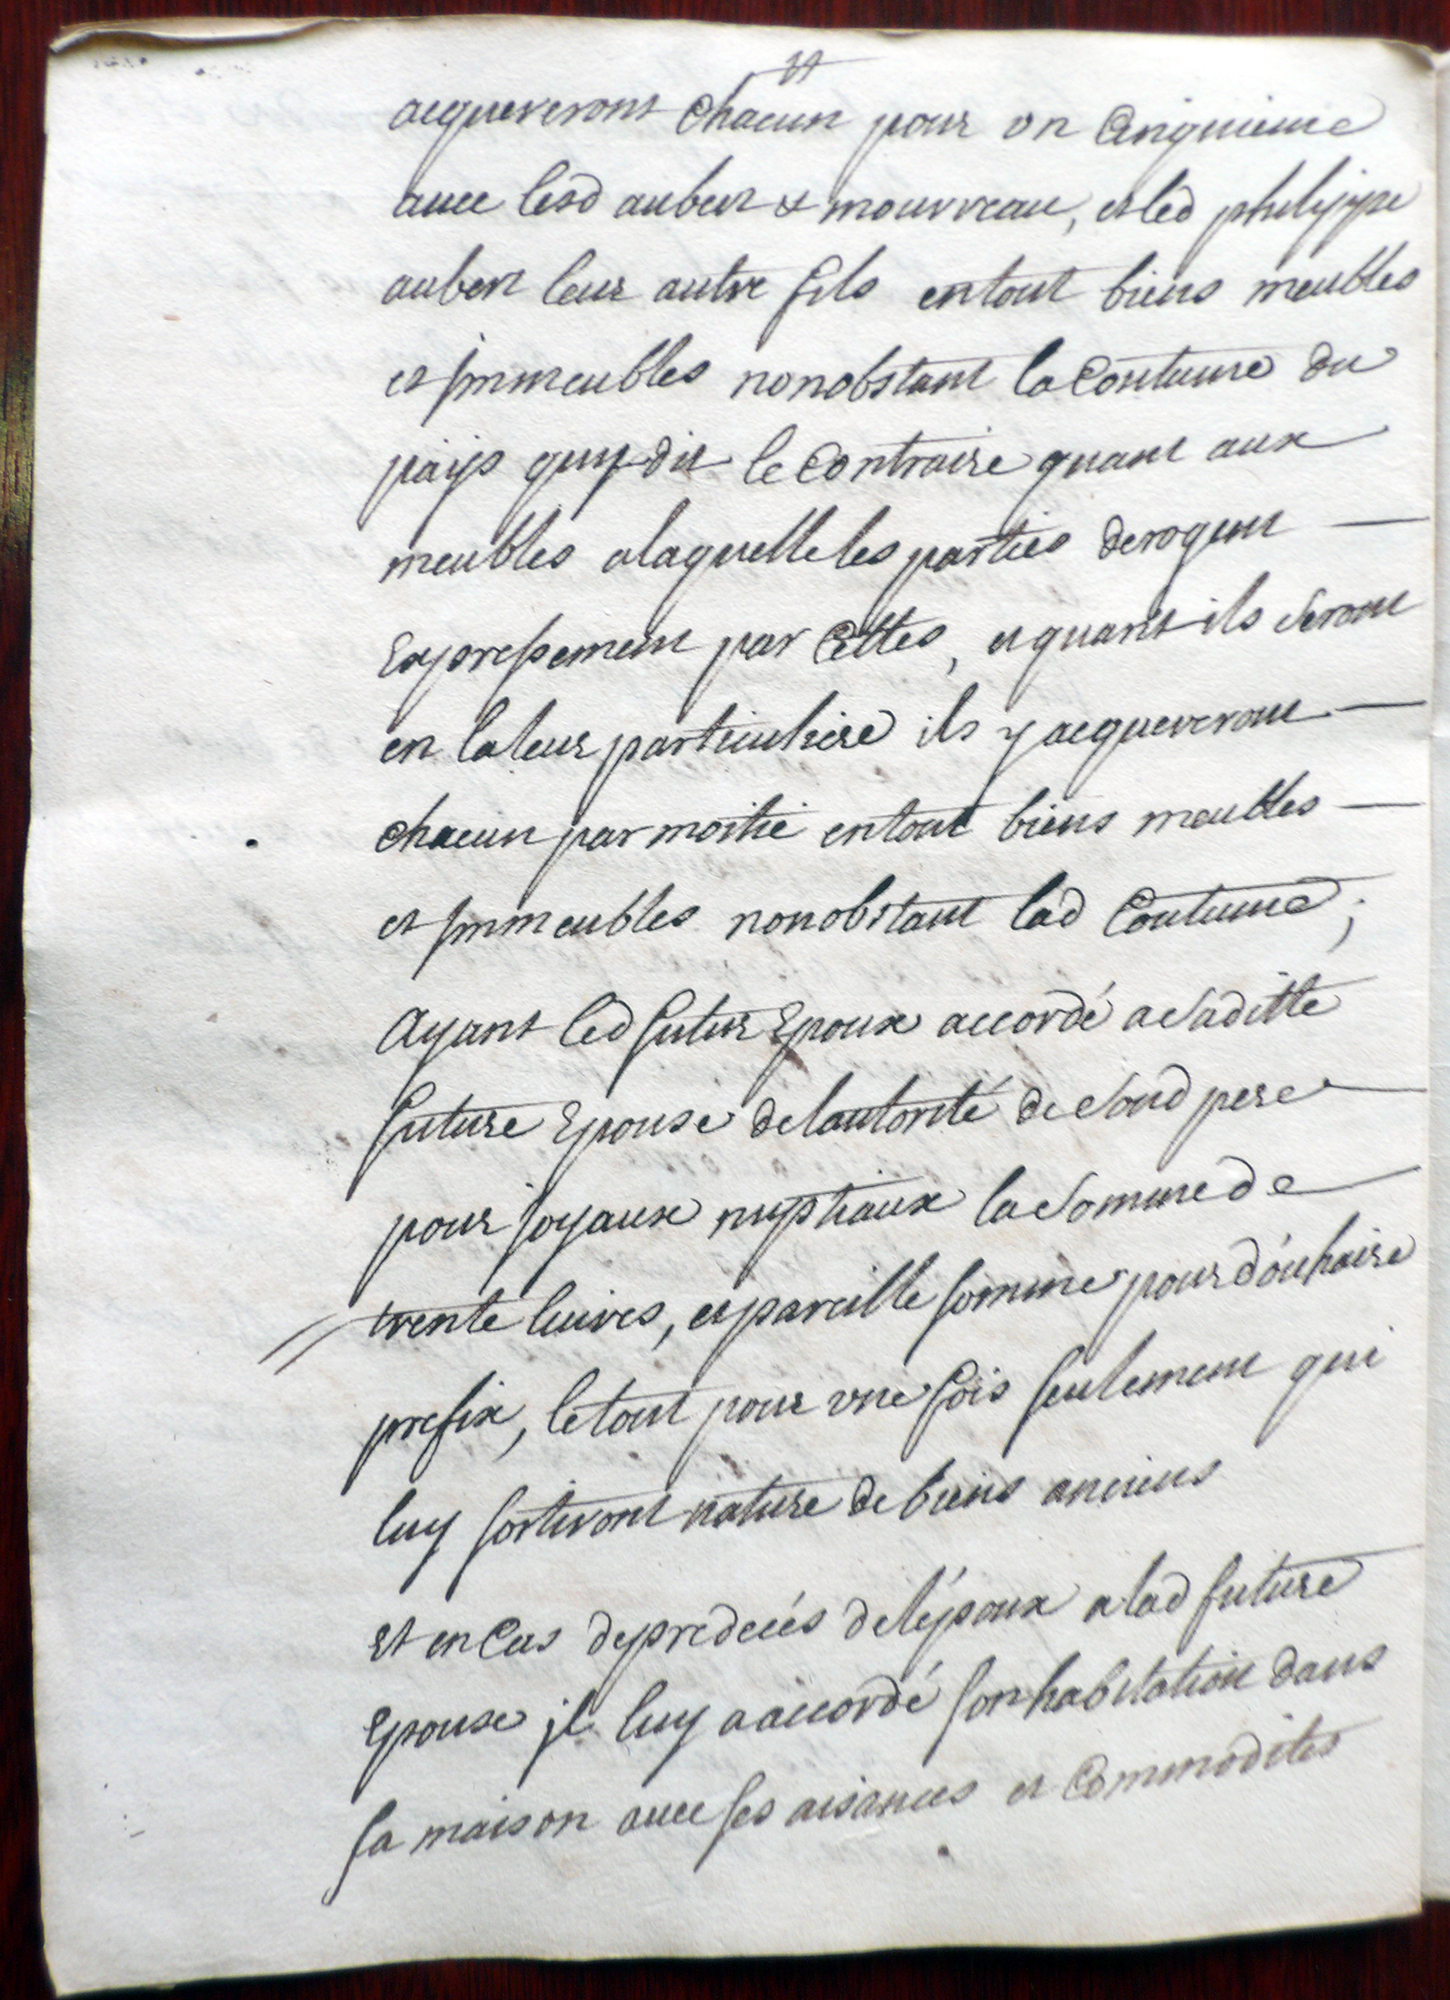 acquereront chacun pour un cinquieme
avec lesd aubert & mourreau, et led philippe
aubert leur autre fils en tout biens meubles
et immeubles nonobstant la Coutume du
païs quy dit le Contraire quant aux
meubles a laquelle les parties derogent —
Expressement par Cettes, et quant ils seront
en la leur particuliere ils y acquereront —
chacun par moitié en tout biens meubles —
et immeubles nonobstant lad Coutume ;
Ayant led futur Epoux accordé a saditte
future Epouse de lautorité de sond pere
pour joyaux nuptiaux la somme de
trente livres, et pareille somme pour douhaire
prefix, le tout pour une fois seulement qui
luy sortiront nature de biens anciens
Et en Cas de predecés de lépoux a lad future
Epouse il luy a accordé son habitation dans
sa maison avec ses aisances et Commodités